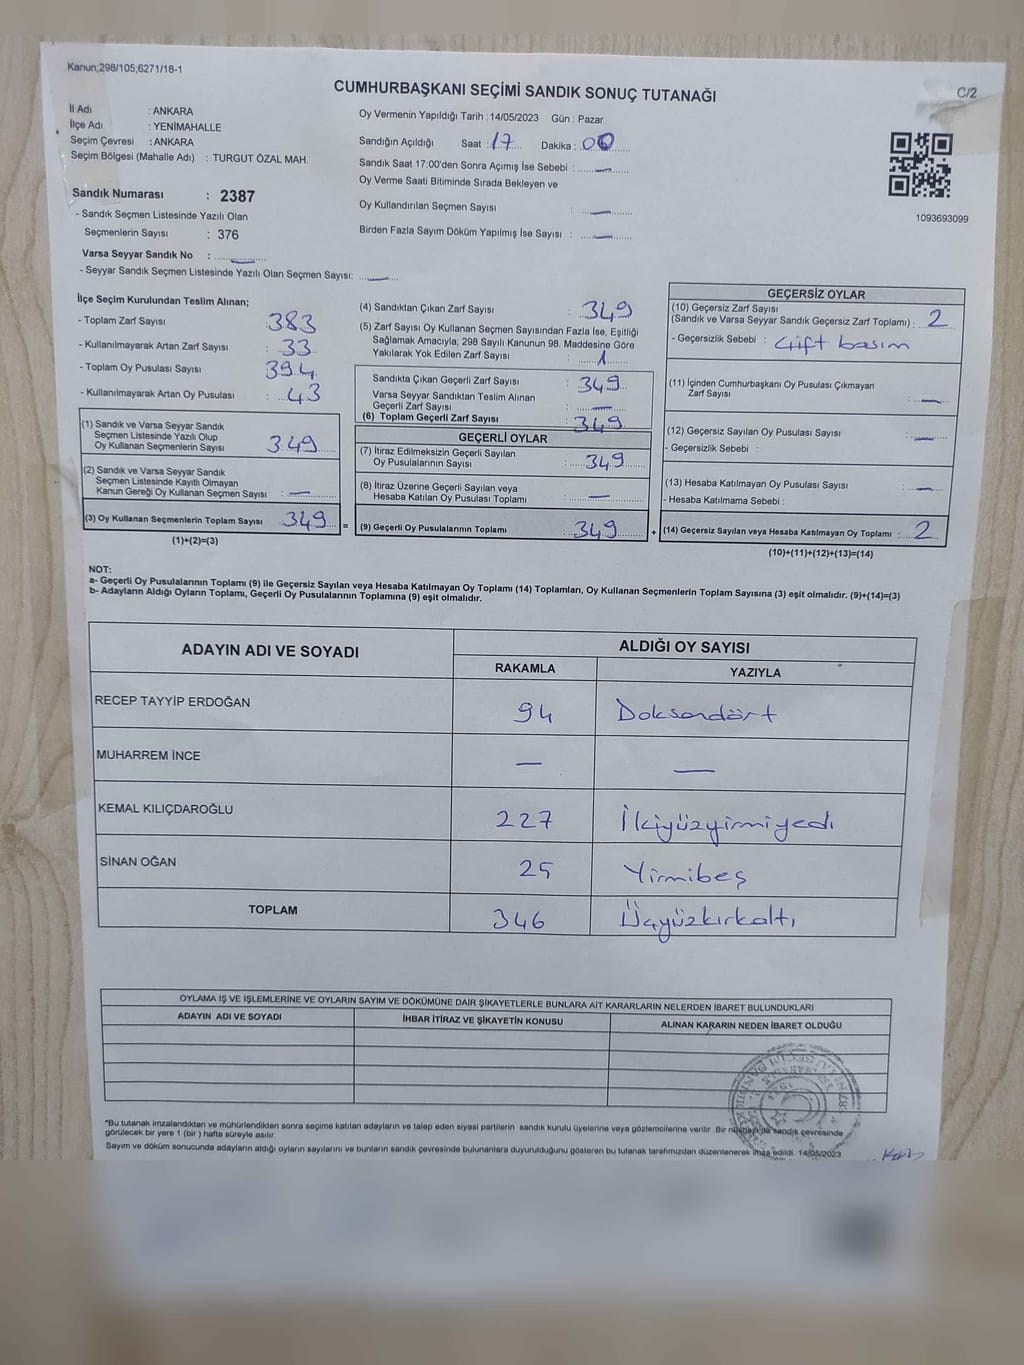 Kanun;298/105;6271/18-1
CUMHURBAŞKANI SEÇİMİ SANDIK SONUÇ TUTANAĞI
C/2
İl Adı : ANKARA
İlçe Adı : YENİMAHALLE
Seçim Çevresi : ANKARA
Seçim Bölgesi (Mahalle Adı) : TURGUT ÖZAL MAH.
Sandık Numarası : 2387
- Sandık Seçmen Listesinde Yazılı Olan
Seçmenlerin Sayısı : 376
Varsa Seyyar Sandık No :
- Seyyar Sandık Seçmen Listesinde Yazılı Olan Seçmen Sayısı:
Oy Vermenin Yapıldığı Tarih : 14/05/2023 Gün : Pazar
Sandığın Açıldığı Saat : 17 Dakika : 00
Sandık Saat 17:00'den Sonra Açımış İse Sebebi : —
Oy Verme Saati Bitiminde Sırada Bekleyen ve
Oy Kullandırılan Seçmen Sayısı : —
Birden Fazla Sayım Döküm Yapılmış İse Sayısı : —
1093693099
İlçe Seçim Kurulundan Teslim Alınan;
- Toplam Zarf Sayısı : 383
- Kullanılmayarak Artan Zarf Sayısı : 33
- Toplam Oy Pusulası Sayısı : 394
- Kullanılmayarak Artan Oy Pusulası : 43
(1) Sandık ve Varsa Seyyar Sandık
Seçmen Listesinde Yazılı Olup
Oy Kullanan Seçmenlerin Sayısı : 349
(2) Sandık ve Varsa Seyyar Sandık
Seçmen Listesinde Kayıtlı Olmayan
Kanun Gereği Oy Kullanan Seçmen Sayısı : —
(3) Oy Kullanan Seçmenlerin Toplam Sayısı 349 =
(1)+(2)=(3)
(4) Sandıktan Çıkan Zarf Sayısı : 349
(5) Zarf Sayısı Oy Kullanan Seçmen Sayısından Fazla İse, Eşitliği
Sağlamak Amacıyla; 298 Sayılı Kanunun 98. Maddesine Göre
Yakılarak Yok Edilen Zarf Sayısı : 1
Sandıkta Çıkan Geçerli Zarf Sayısı : 349
Varsa Seyyar Sandıktan Teslim Alınan
Geçerli Zarf Sayısı : —
(6) Toplam Geçerli Zarf Sayısı : 349
GEÇERLİ OYLAR
(7) İtiraz Edilmeksizin Geçerli Sayılan
Oy Pusulalarının Sayısı : 349
(8) İtiraz Üzerine Geçerli Sayılan veya
Hesaba Katılan Oy Pusulası Toplamı : —
(9) Geçerli Oy Pusulalarının Toplamı : 349 +
GEÇERSİZ OYLAR
(10) Geçersiz Zarf Sayısı
(Sandık ve Varsa Seyyar Sandık Geçersiz Zarf Toplamı) : 2
- Geçersizlik Sebebi : Çift basım
(11) İçinden Cumhurbaşkanı Oy Pusulası Çıkmayan
Zarf Sayısı : —
(12) Geçersiz Sayılan Oy Pusulası Sayısı : —
- Geçersizlik Sebebi :
(13) Hesaba Katılmayan Oy Pusulası Sayısı : —
- Hesaba Katılmama Sebebi :
(14) Geçersiz Sayılan veya Hesaba Katılmayan Oy Toplamı : 2
(10)+(11)+(12)+(13)=(14)
NOT:
a- Geçerli Oy Pusulalarının Toplamı (9) ile Geçersiz Sayılan veya Hesaba Katılmayan Oy Toplamı (14) Toplamları, Oy Kullanan Seçmenlerin Toplam Sayısına (3) eşit olmalıdır. (9)+(14)=(3)
b- Adayların Aldığı Oyların Toplamı, Geçerli Oy Pusulalarının Toplamına (9) eşit olmalıdır.
ADAYIN ADI VE SOYADI ALDIĞI OY SAYISI
RAKAMLA YAZIYLA
RECEP TAYYİP ERDOĞAN 94 Doksandört
MUHARREM İNCE — —
KEMAL KILIÇDAROĞLU 227 İkiyüzyirmiyedi
SİNAN OĞAN 25 Yirmibeş
TOPLAM 346 Üçyüzkırkaltı
OYLAMA İŞ VE İŞLEMLERİNE VE OYLARIN SAYIM VE DÖKÜMÜNE DAİR ŞİKAYETLERLE BUNLARA AİT KARARLARIN NELERDEN İBARET BULUNDUKLARI
ADAYIN ADI VE SOYADI İHBAR İTİRAZ VE ŞİKAYETİN KONUSU ALINAN KARARIN NEDEN İBARET OLDUĞU
*Bu tutanak imzalandıktan ve mühürlendikten sonra seçime katılan adayların ve talep eden siyasi partilerin sandık kurulu üyelerine veya gözlemcilerine verilir. Bir nüshası da sandık çevresinde
görülecek bir yere 1 (bir) hafta süreyle asılır.
Sayım ve döküm sonucunda adayların aldığı oyların sayılarını ve bunların sandık çevresinde bulunanlara duyurulduğunu gösteren bu tutanak tarafımızdan düzenlenerek imza edildi. 14/05/2023